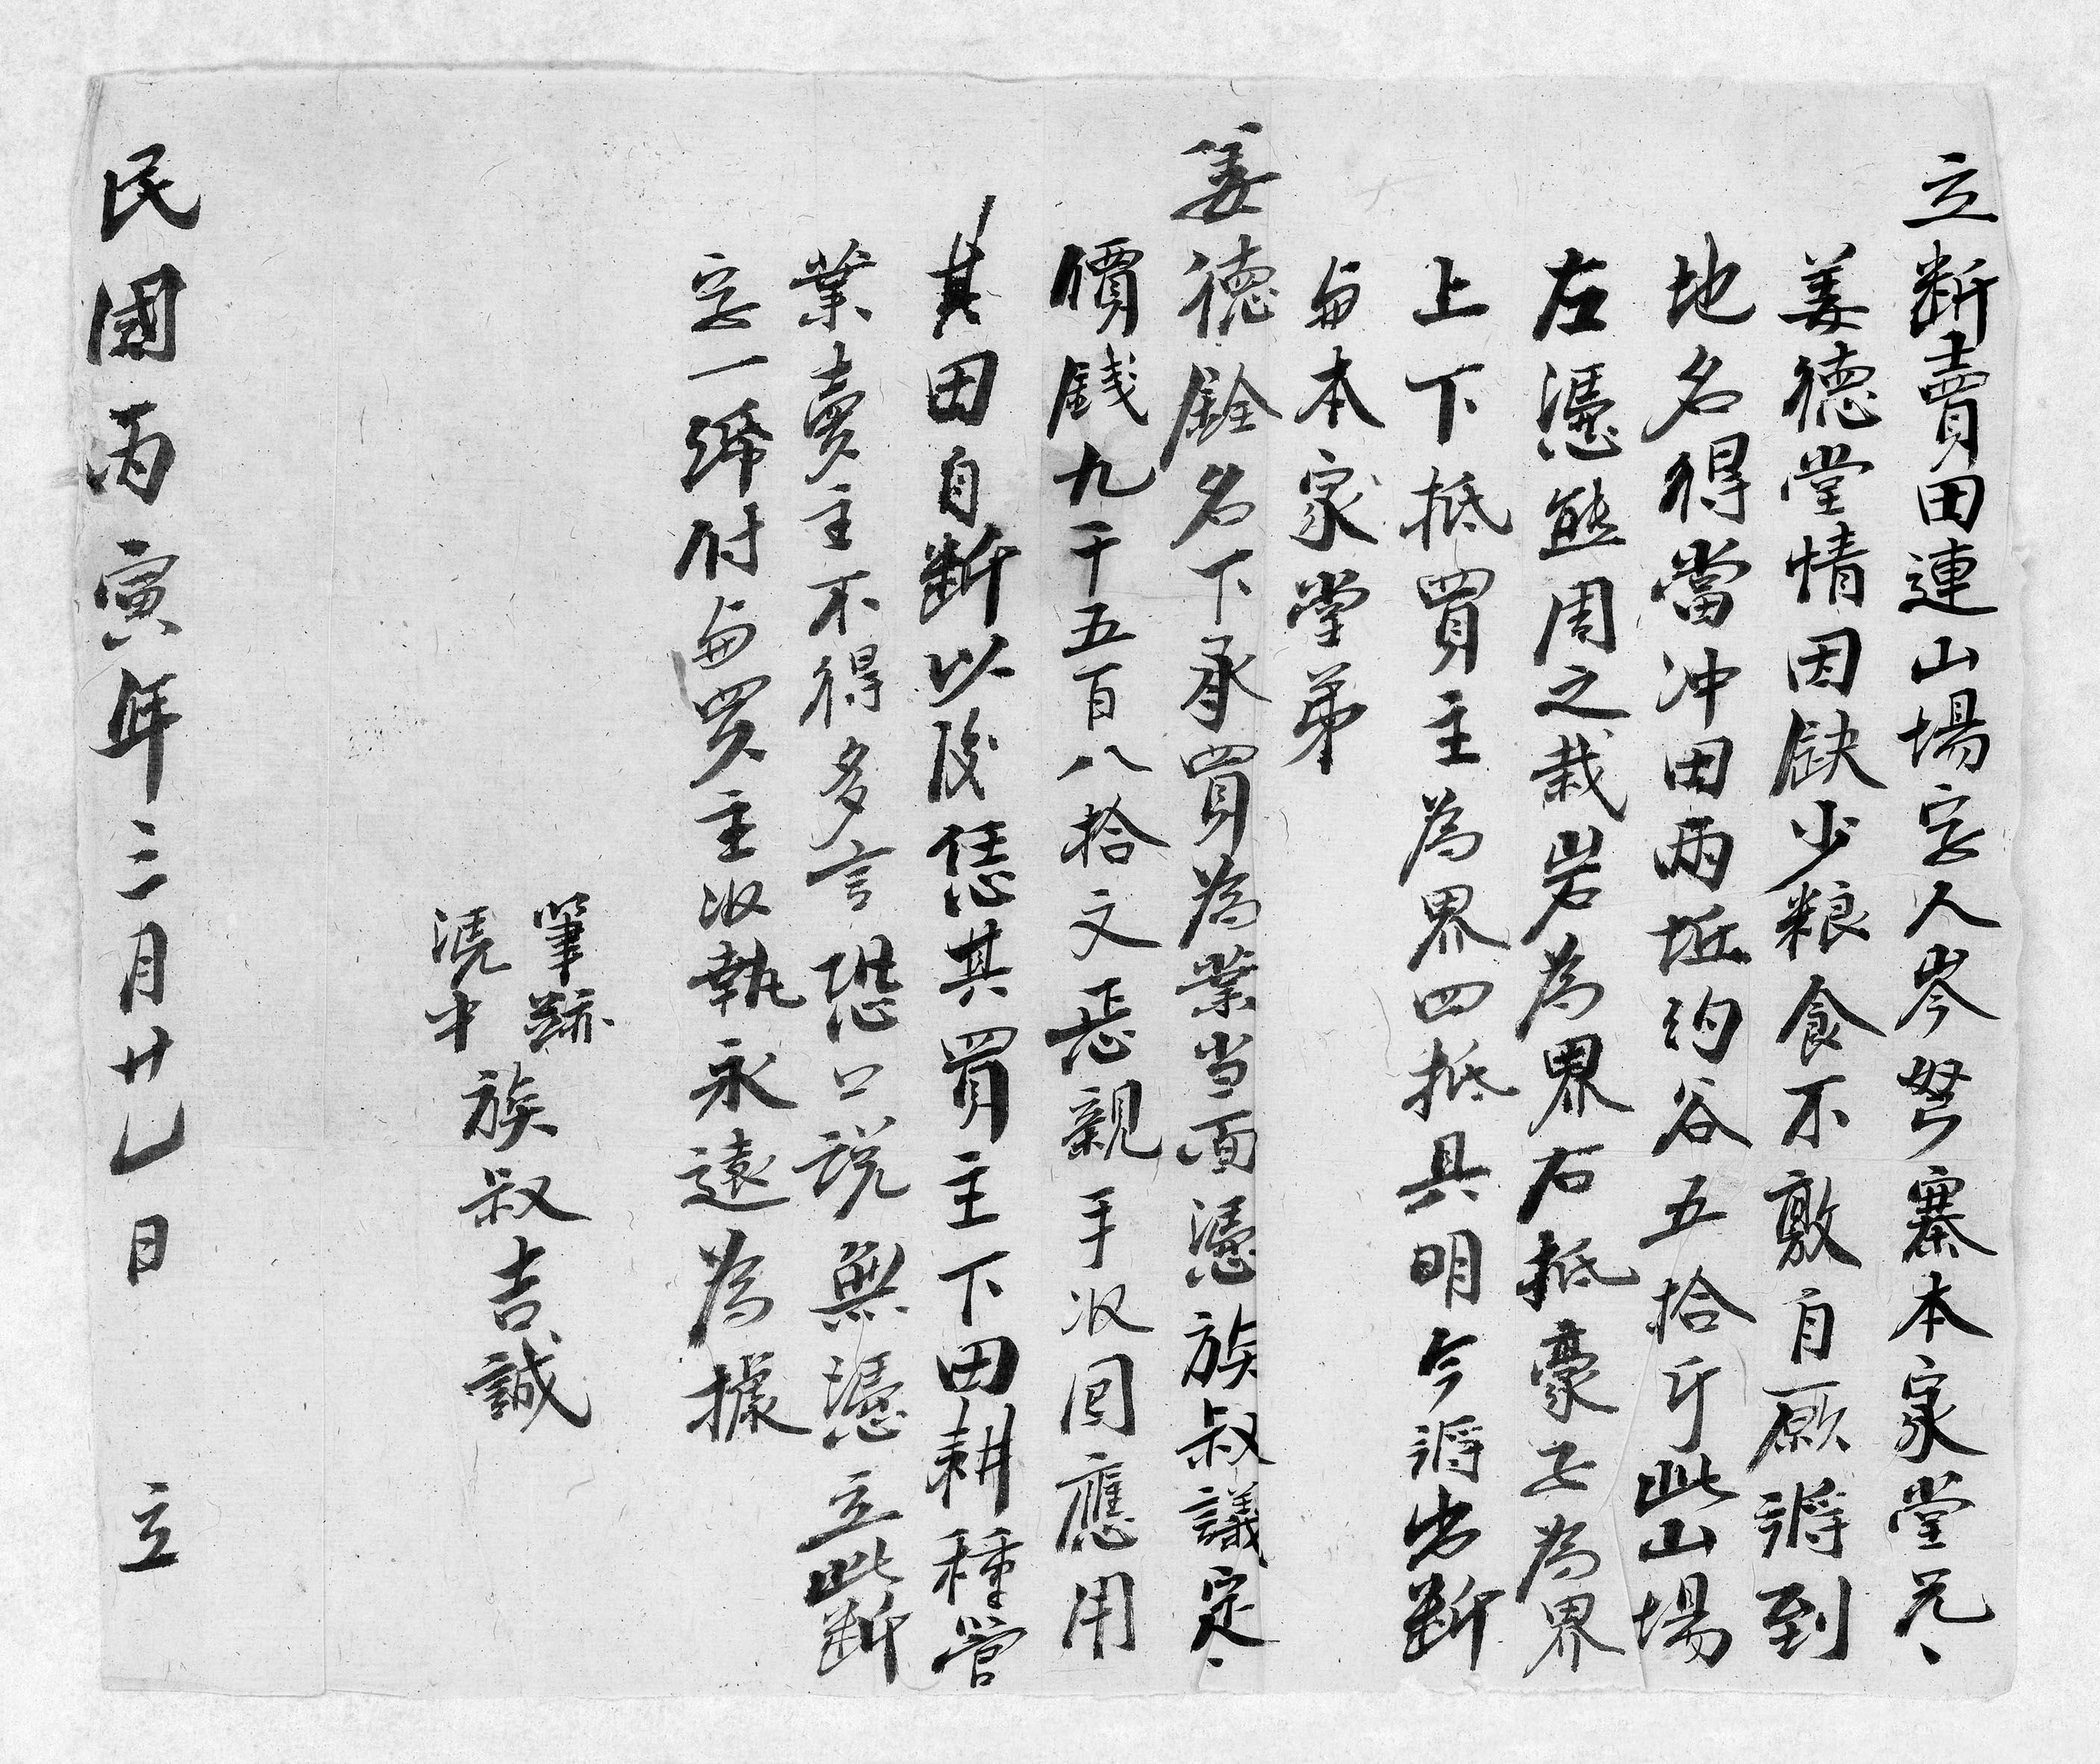 立断賣田連山塲字人岑弩寨本家堂兄
姜德堂情因缺少粮食不敷自愿將到
地名得當冲田兩坵約谷五拾斤此山塲
左憑熊周之栽岩為界右抵豪子為界
上下抵買主為界四抵具明今將出断
與本家堂弟
姜德銓名下承買為業当面憑族叔議定
價錢九千五百八拾文恁親手収囬應用
其田自断以後恁其買主下田耕種管
業賣主不得多言恐口説無憑立此断
字一帋付與買主収執永遠為據
筆跡
憑中 族叔吉誠
民國丙寅年三月廿乚日 立